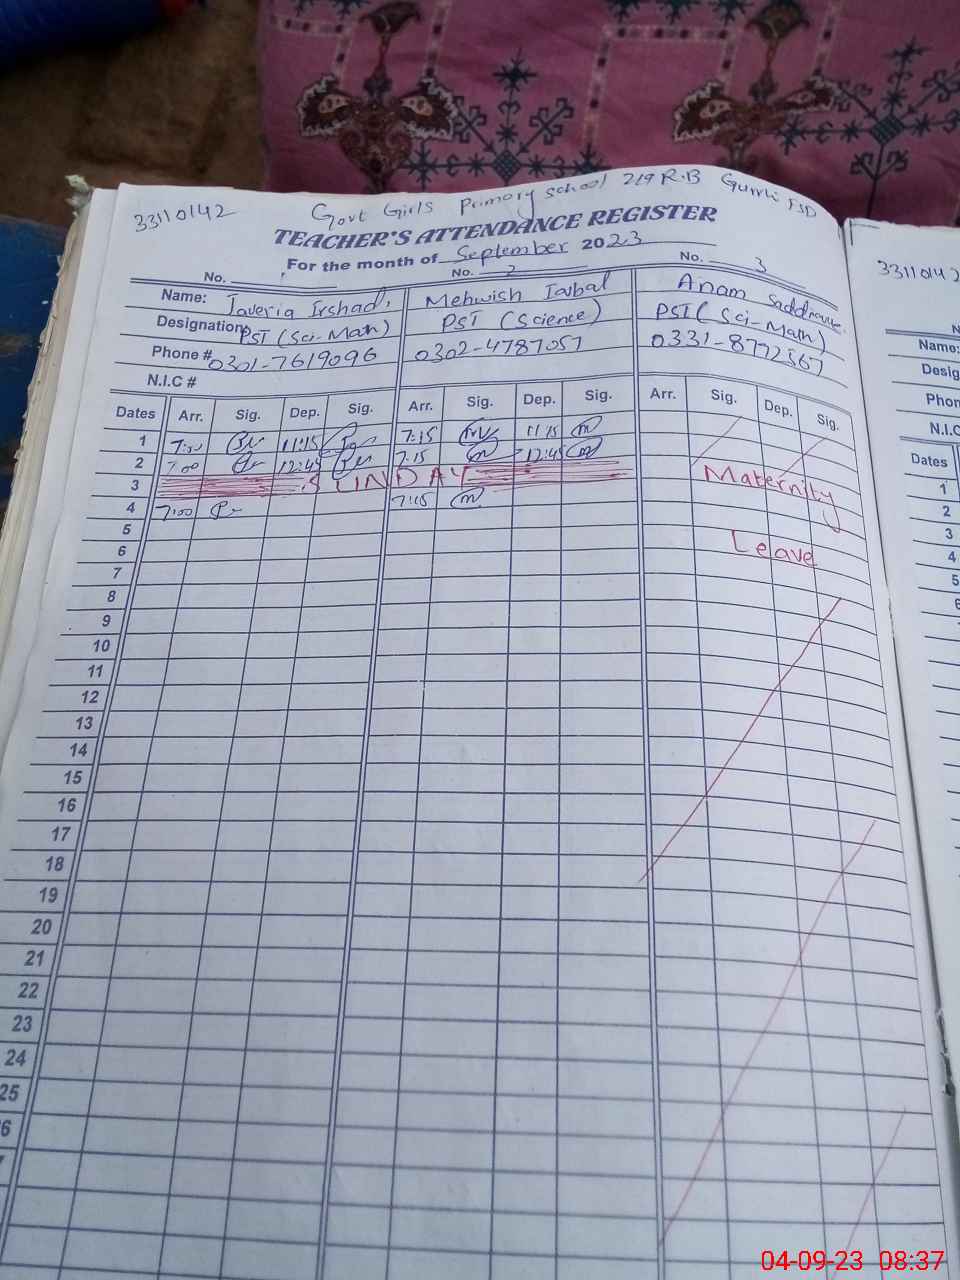 33110142 Govt Girls Primary school 219 R.B Gumti FSD
TEACHER'S ATTENDANCE REGISTER
For the month of September 2023
No. 1 No. 2 No. 3
Name: Javeria Irshad, Mehwish Iqbal Anam
Designation PST (Sci-Math) PST (Science) PST (Sci-Math)
Phone # 0301-7619096 0302-4787057 0331-8772567
N.I.C #
Dates Arr. Sig. Dep. Sig. Arr. Sig. Dep. Sig. Arr. Sig. Dep. Sig.
1 7:00 11:15 7:15 11:15
2 7:00 12:45 7:15 12:45
3 SUNDAY Maternity
4 7:00 7:15
5
6 Leave
7
8
9
10
11
12
13
14
15
16
17
18
19
20
21
22
23
24
25
6
7
33110142
N
Name:
Desig
Phon
N.I.C
Dates
1
2
3
4
5
6
04-09-23 08:37